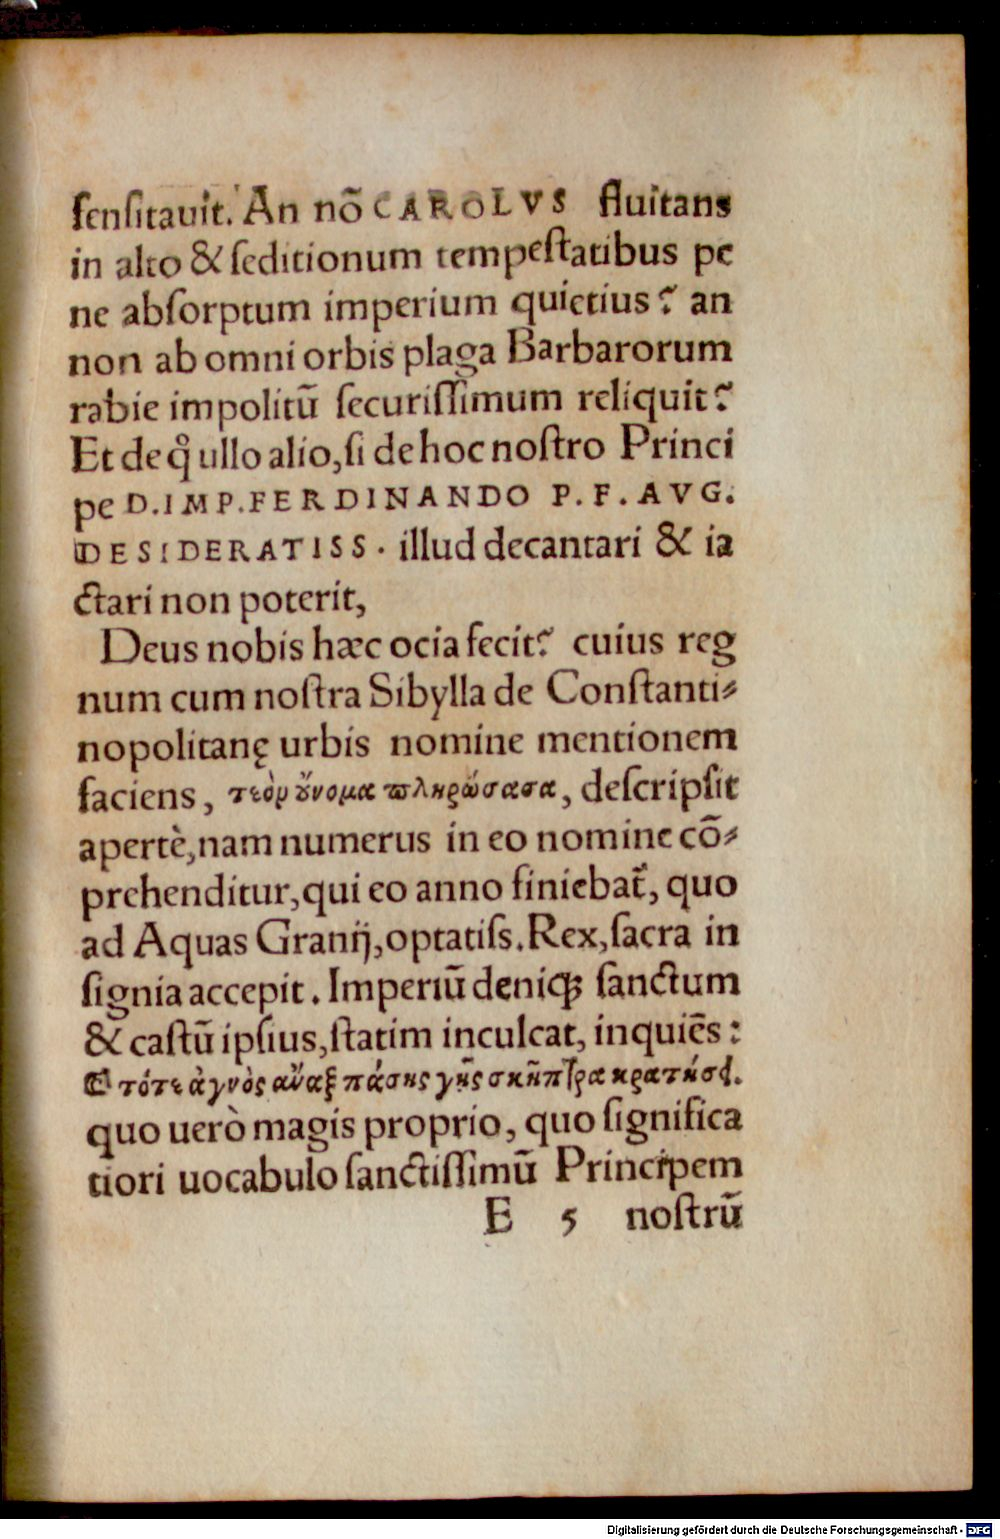 sensitauit. An nõ CAROLVS fluitans
in alto & seditionum tempestatibus pe
ne absorptum imperium quietius? an
non ab omni orbis plaga Barbarorum
rabie impolitũ securissimum reliquit?
Et de q̊ ullo alio, si de hoc nostro Princi
pe D. IMP. FERDINANDO P. F. AVG.
DESIDERATISS. illud decantari & ia
ctari non poterit,
Deus nobis hæc ocia fecit? cuius reg
num cum nostra Sibylla de Constanti-
nopolitanę urbis nomine mentionem
faciens, τεὸν οὔνομα πληρώσασα, descripsit
apertè, nam numerus in eo nomine cõ-
prehenditur, qui eo anno finiebat᷑, quo
ad Aquas Granij, optatiss. Rex, sacra in
signia accepit. Imperiũ deniqꝫ sanctum
& castũ ipsius, statim inculcat, inquiẽs:
τότε ἁγνὸς ἄναξ πάσης γῆς σκῆπτρα κρατήσει.
quo uerò magis proprio, quo significa
tiori uocabulo sanctissimũ Principem
E 5 nostrũ
Digitalisierung gefördert durch die Deutsche Forschungsgemeinschaft - DFG